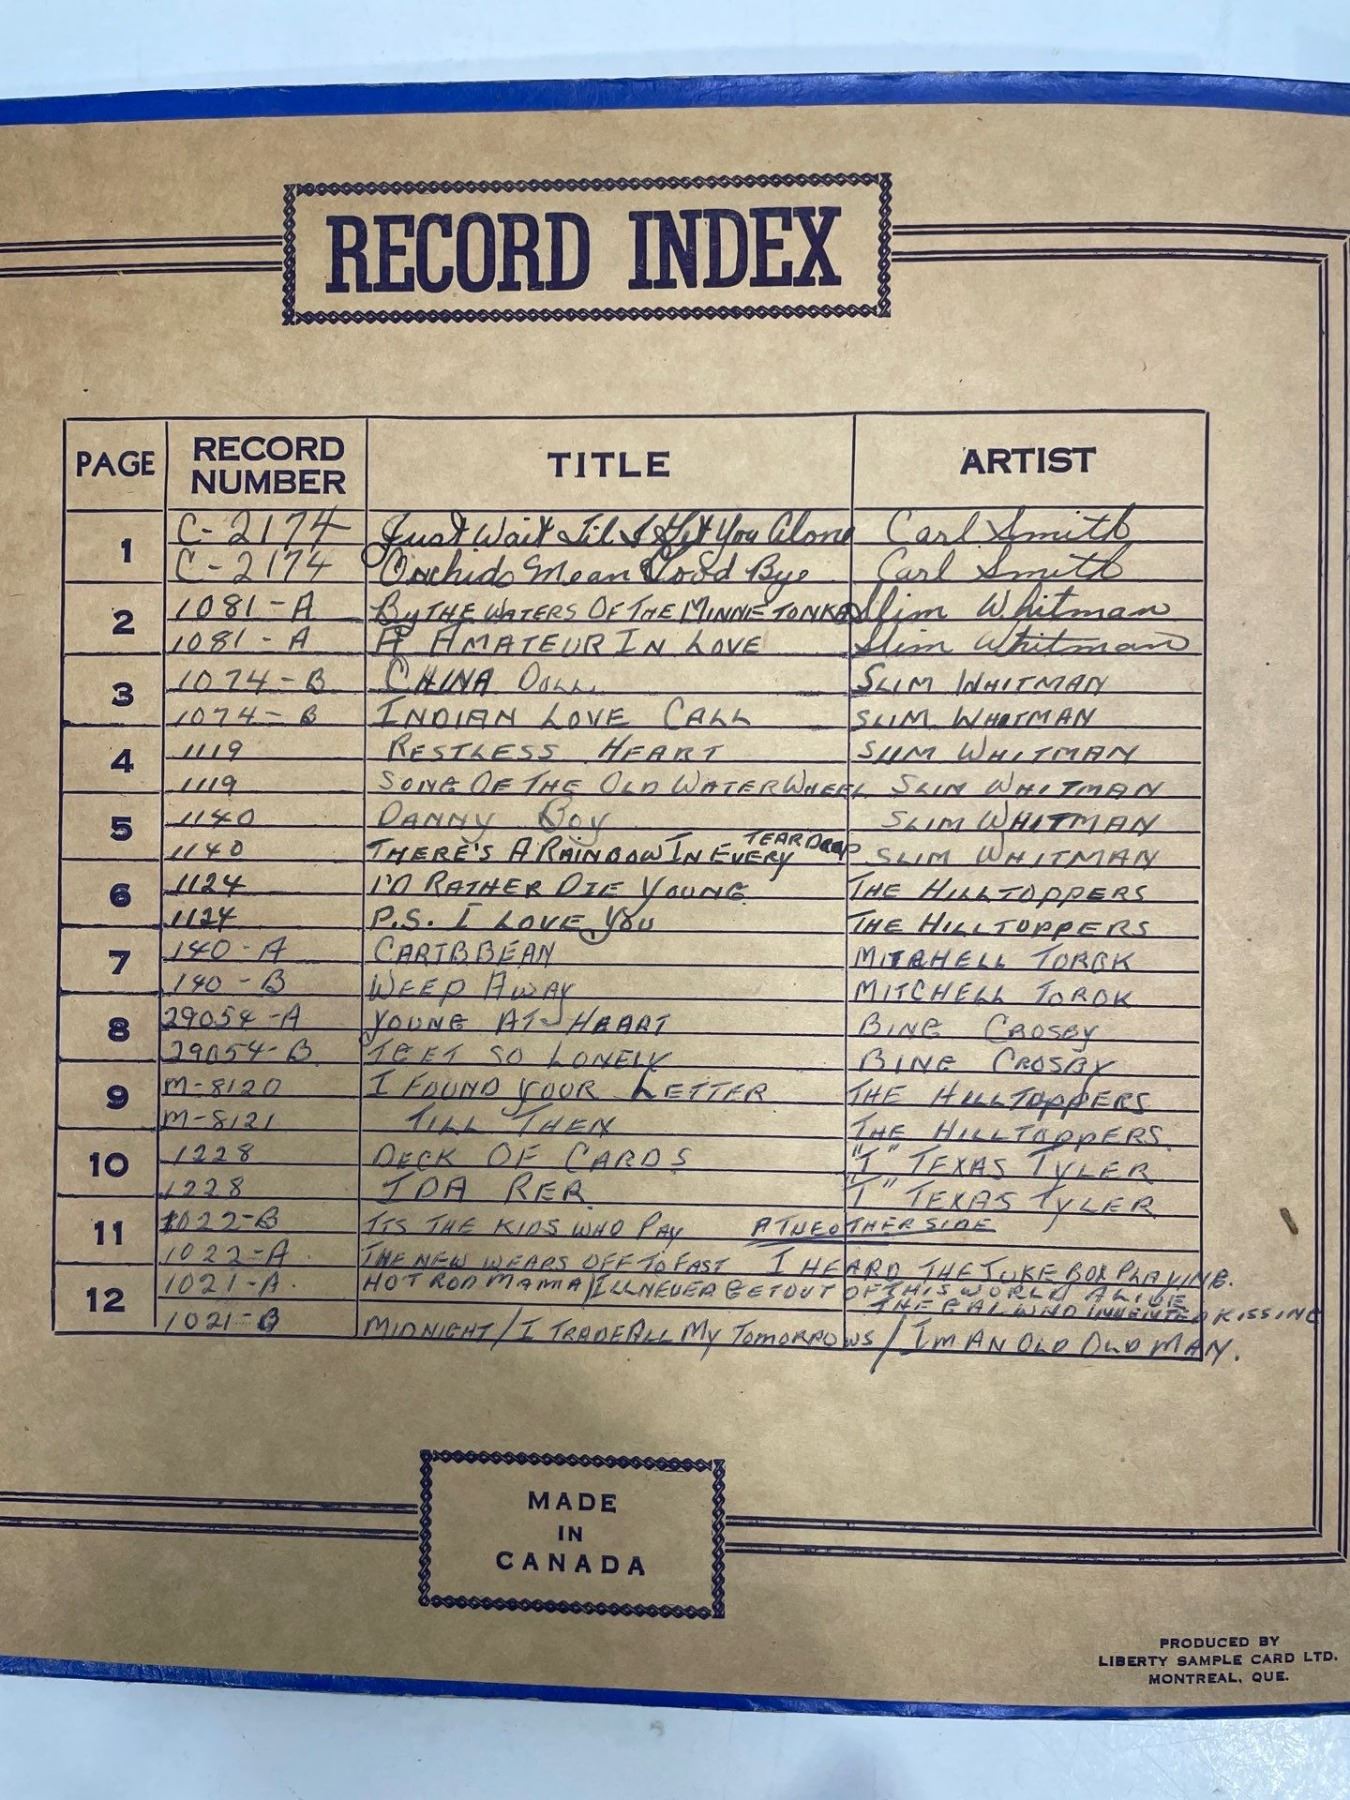 RECORD INDEX
PAGE RECORD NUMBER TITLE ARTIST
1 C-2174 Just Wait Til I Get You Alone Carl Smith
C-2174 Orchids Mean Good Bye Carl Smith
2 1081-A By THE WATERS OF THE MINNETONKA Slim Whitman
1081-A A AMATEUR IN LOVE Slim Whitman
3 1074-B CHINA DOLL SLIM WHITMAN
1074-B INDIAN LOVE CALL SLIM WHITMAN
4 1119 RESTLESS HEART SLIM WHITMAN
1119 SONG OF THE OLD WATER WHEEL SLIM WHITMAN
5 1140 DANNY BOY SLIM WHITMAN
1140 THERE'S A RAINBOW IN EVERY TEAR DROP SLIM WHITMAN
6 1124 I'D RATHER DIE YOUNG THE HILLTOPPERS
1124 P.S. I LOVE YOU THE HILLTOPPERS
7 140-A CARIBBEAN MITCHELL TOROK
140-B WEEP AWAY MITCHELL TOROK
8 29054-A YOUNG AT HEART BING CROSBY
29054-B I GET SO LONELY BING CROSBY
9 M-8120 I FOUND YOUR LETTER THE HILLTOPPERS
M-8121 TILL THEN THE HILLTOPPERS.
10 1228 DECK OF CARDS "T" TEXAS TYLER
1228 IDA RED "T" TEXAS TYLER
11 1022-B ITS THE KIDS WHO PAY
1022-A THE NEW WEARS OFF TO FAST I HEARD THE JUKE BOX PLAYING.
12 1021-A. HOT ROD MAMA/ILL NEVER GET OUT OF THIS WORLD ALIVE
THE GAL WHO INVENTED KISSING
1021-B MIDNIGHT/I TRADE ALL MY TOMORROWS/IM AN OLD OLD MAN.
MADE
IN
CANADA
PRODUCED BY
LIBERTY SAMPLE CARD LTD.
MONTREAL, QUE.